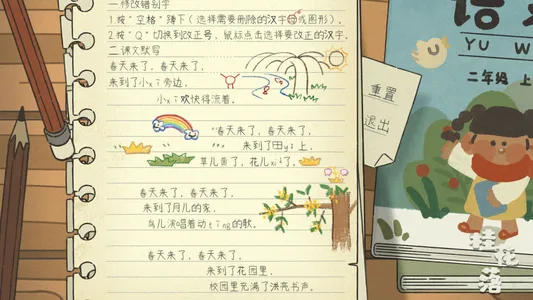 一 修改错别字
1.按“空格”蹲下（选择需要删除的汉字或图形）。
2.按“Q”切换到改正号，鼠标点击选择要改正的汉字。
二 课文默写
春天来了，春天来了，
来到了小xī旁边，
小xī欢快得流着。
“春天来了，春天来了，
来到了田yě上，
草儿黄了，花儿xiè了，
春天来了，春天来了，
来到了月儿的家，
鸟儿演唱着动tīng的歌。
春天来了，春天来了，
来到了花园里，
校园里充满了洪亮书声。
重置
退出
语
YU W
二年级 上